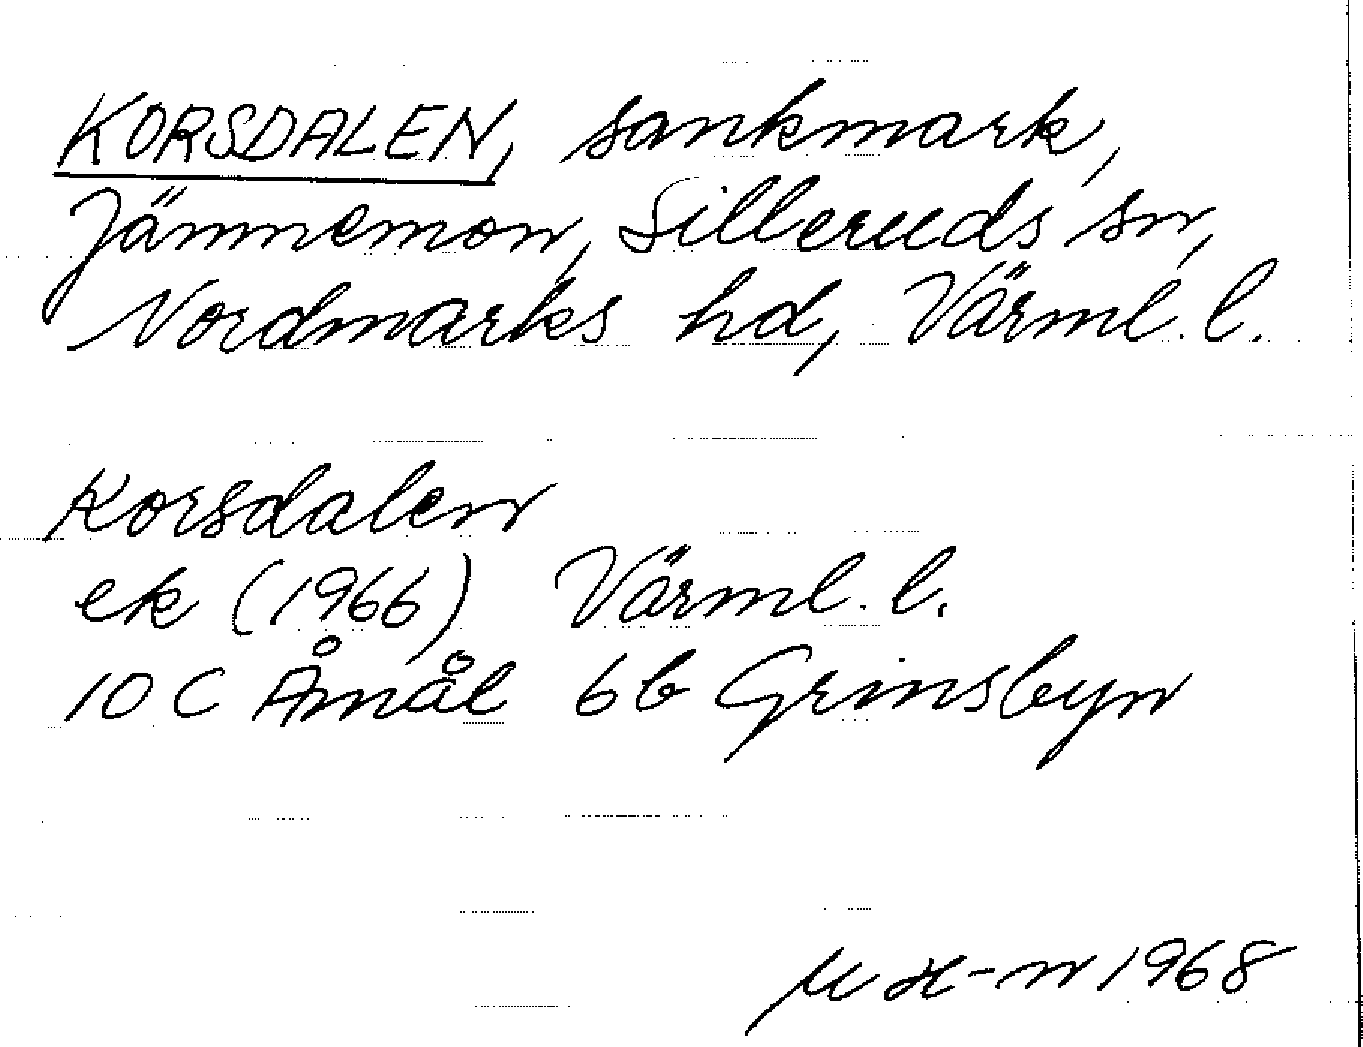 KORSDALEN, sankmark,
Jännemon, Silleruds sn,
Nordmarks hd, Värml. l.
Korsdalen
ek (1966) Värml. l.
10 C Åmål 6b Grinsbyn
1968